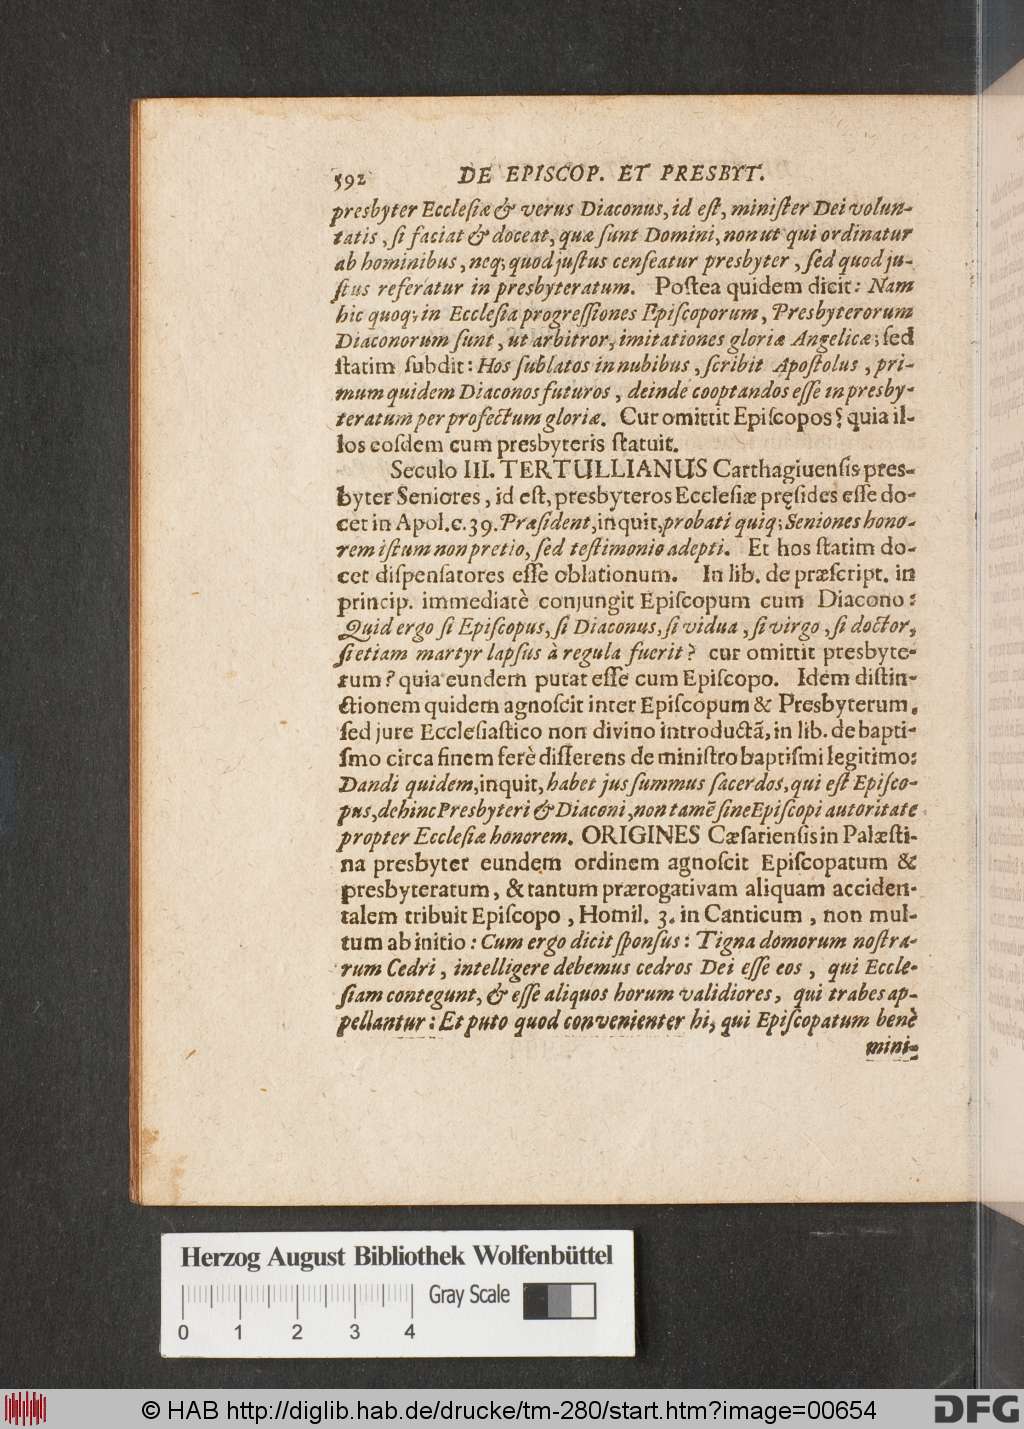 592 DE EPISCOP. ET PRESBYT.
presbyter Ecclesiæ & verus Diaconus, id est, minister Dei volun-
tatis, si faciat & doceat, quæ sunt Domini, non ut qui ordinatur
ab hominibus, neq; quod justus censeatur presbyter, sed quod ju-
stus referatur in presbyteratum. Postea quidem dicit: Nam
hic quoq; in Ecclesia progressiones Episcoporum, Presbyterorum
Diaconorum sunt, ut arbitror, imitationes gloriæ Angelicæ; sed
statim subdit: Hos sublatos in nubibus, scribit Apostolus, pri-
mum quidem Diaconos futuros, deinde cooptandos esse in presby-
teratum per profectum gloriæ. Cur omittit Episcopos? quia il-
los eosdem cum presbyteris statuit.
Seculo III. TERTULLIANUS Carthagiuensis pres-
byter Seniores, id est, presbyteros Ecclesiæ pręsides esse do-
cet in Apol. c. 39. Præsident, inquit, probati quiq; Seniones hono-
rem istum non pretio, sed testimonio adepti. Et hos statim do-
cet dispensatores esse oblationum. In lib. de præscript. in
princip. immediatè conjungit Episcopum cum Diacono:
Quid ergo si Episcopus, si Diaconus, si vidua, si virgo, si doctor,
si etiam martyr lapsus à regula fuerit? cur omittit presbyte-
rum? quia eundem putat esse cum Episcopo. Idem distin-
ctionem quidem agnoscit inter Episcopum & Presbyterum,
sed jure Ecclesiastico non divino introductã, in lib. de bapti-
smo circa finem ferè disserens de ministro baptismi legitimo:
Dandi quidem, inquit, habet jus summus sacerdos, qui est Episco-
pus, dehinc Presbyteri & Diaconi, non tamẽ sine Episcopi autoritate
propter Ecclesiæ honorem. ORIGINES Cæsariensis in Palæsti-
na presbyter eundem ordinem agnoscit Episcopatum &
presbyteratum, & tantum prærogativam aliquam acciden-
talem tribuit Episcopo, Homil. 3. in Canticum, non mul-
tum ab initio: Cum ergo dicit sponsus: Tigna domorum nostra-
rum Cedri, intelligere debemus cedros Dei esse eos, qui Eccle-
siam contegunt, & esse aliquos horum validiores, qui trabes ap-
pellantur: Et puto quod convenienter hi, qui Episcopatum benè
mini-
Herzog August Bibliothek Wolfenbüttel
Gray Scale
0 1 2 3 4
© HAB http://diglib.hab.de/drucke/tm-280/start.htm?image=00654
DFG